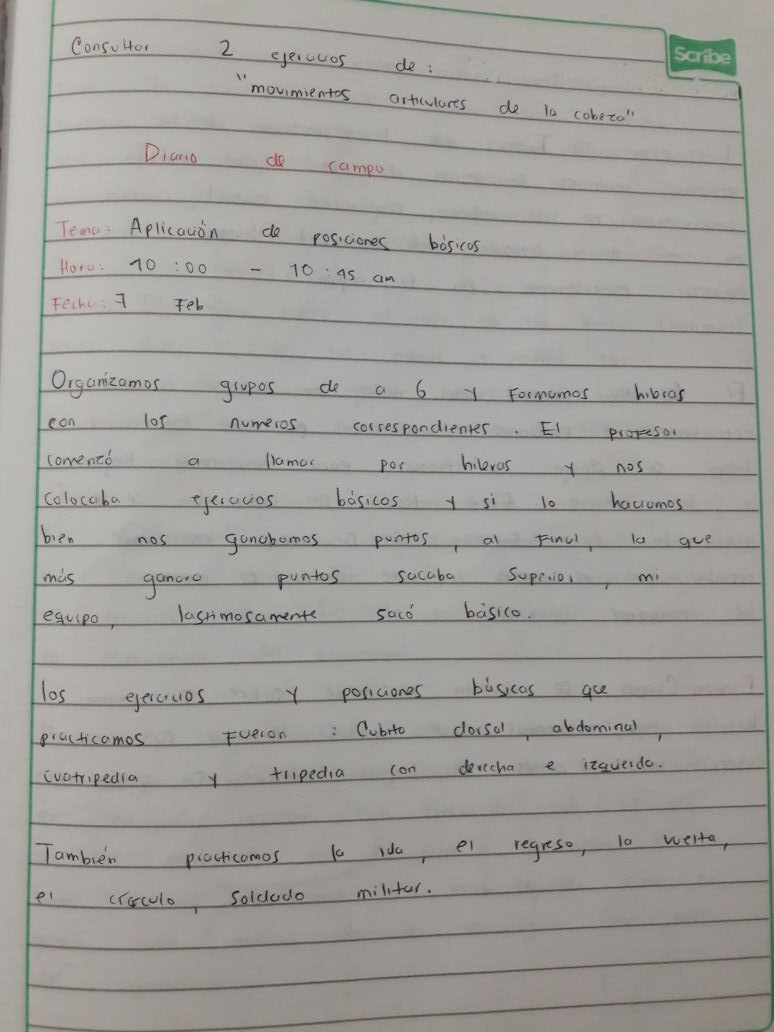 Scribe
Consultar 2 ejercicios de:
"movimientos articulares de la cabeza"
Diario de campo
Tema: Aplicación de posiciones básicas
Hora: 10:00 - 10:45 am
Fecha: 7 Feb
Organizamos grupos de a 6 y Formamos hibras
con los numeros correspondientes. El profesor
comenzó a llamar por hileras y nos
colocaba ejercicios básicos y si lo haciamos
bien nos ganabamos puntos, al Final, la que
más ganara puntos sacaba Superior, mi
equipo, lastimosamente sacó básico.
los ejercicios y posiciones básicas que
practicamos Fueron: Cubito dorsal, abdominal,
cuatripedia y tripedia con derecha e izquierda.
También practicamos la ida, el regreso, la vuelta,
el círculo, soldado militar.